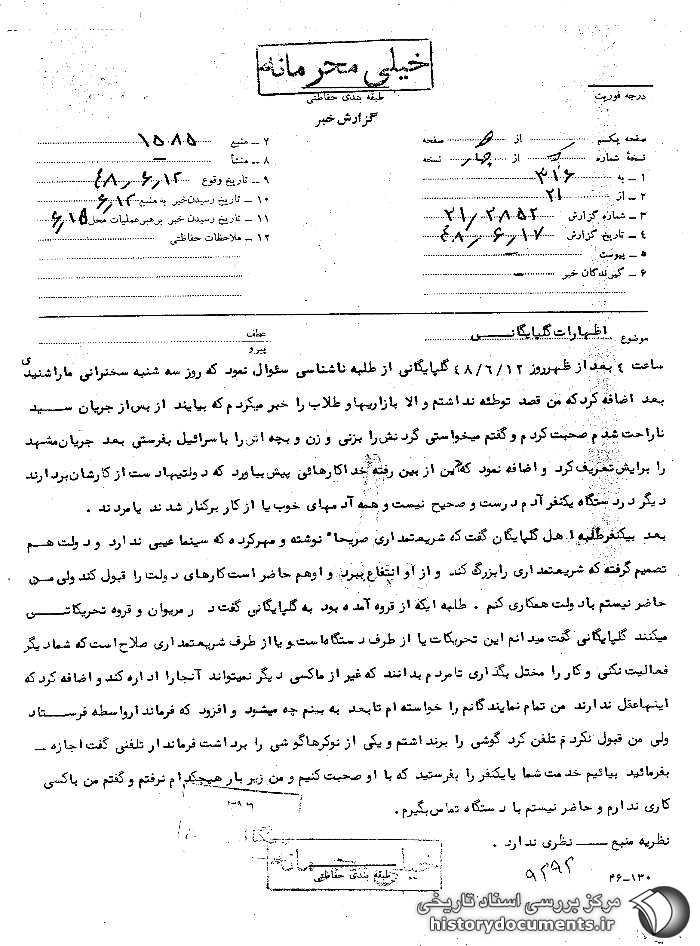 خیلی محرمانه
طبقه بندی حفاظتی
گزارش خبر
درجه فوریت
صفحه یکم از صفحه
نسخهٔ شماره از چهار نسخه
۱ ــ به ۳۱۶
۲ ــ از ۲۱
۳ ــ شماره گزارش ۲۱/۲۸۵۲
۴ ــ تاریخ گزارش ۴۸٫۶٫۱۷
۵ ــ پیوست ــ
۶ ــ گیرندگان خبر ــ
۷ ــ منبع ۱۵۸۵
۸ ــ منشأ ــ
۹ ــ تاریخ وقوع ۴۸٫۶٫۱۲
۱۰ ــ تاریخ رسیدن خبر به منبع ۶٫۱۲
۱۱ ــ تاریخ رسیدن خبر برهبر عملیات محل ۶٫۱۵
۱۲ ــ ملاحظات حفاظتی
موضوع اظهارات گلپایگانی
عطف
پیرو
ساعت ۴ بعد از ظهر روز ۴۸/۶/۱۲ گلپایگانی از طلبه ناشناسی سئوال نمود که روز سه شنبه سخنرانی ما را شنیدی
بعد اضافه کرد که من قصد توطئه نداشتم و الا بازاریها و طلاب را خبر میکردم که بیایند از بس از جریان سید
ناراحت شدم صحبت کردم و گفتم میخواستی گردنش را بزنی و زن و بچه اش را باسرائیل بفرستی بعد جریان مشهد
را برایش تعریف کرد و اضافه نمود که این از بین رفته خدا کارهائی پیش بیاورد که دولتیها دست از کارشان بردارند
دیگر در دستگاه یکنفر آدم درست و صحیح نیست و همه آدمهای خوب یا از کار برکنار شدند یا مردند .
بعد بیکنفر طلبه اهل گلپایگان گفت که شریعتمداری صریحاً نوشته و مهر کرده که سینما عیبی ندارد و دولت هم
تصمیم گرفته که شریعتمداری را بزرگ کند و از او انتفاع ببرد و او هم حاضر است کارهای دولت را قبول کند ولی من
حاضر نیستم با دولت همکاری کنم . طلبه ایکه از قروه آمده بود به گلپایگانی گفت در مریوان و قروه تحریکاتی
میکنند گلپایگانی گفت میدانم این تحریکات یا از طرف دستگاه است و یا از طرف شریعتمداری صلاح است که شما دیگر
فعالیت نکنی و کار را مختل بگذاری تا مردم بدانند که غیر از ما کسی دیگر نمیتواند آنجا را اداره کند و اضافه کرد که
اینها عقل ندارند من تمام نمایندگانم را خواسته ام تا بعد به بینم چه میشود و افزود که فرماندار واسطه فرستاد
ولی من قبول نکردم تلفن کرد گوشی را برنداشتم و یکی از نوکرها گوشی را برداشت فرماندار تلفنی گفت اجازه ــ
بفرمائید بیائیم خدمت شما یا یکنفر را بفرستید که با او صحبت کنیم و من زیر بار هیچکدام نرفتم و گفتم من با کسی
کاری ندارم و حاضر نیستم با دستگاه تماس بگیرم .
نظریه منبع ــــ نظری ندارد .
خیلی محرمانه
طبقه بندی حفاظتی
۹۲۹۲
۴۶-۱۳۰
مرکز بررسی اسناد تاریخی
historydocuments.ir